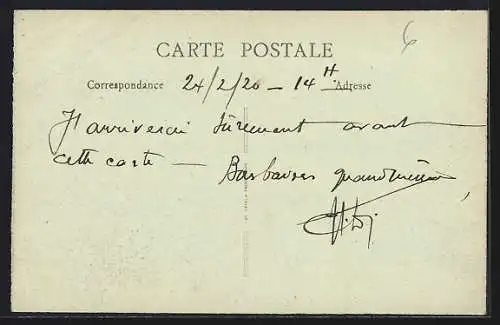 6
CARTE POSTALE
Correspondance 24/2/20 — 14 H Adresse
J'arriverai sûrement avant
cette carte — quand même